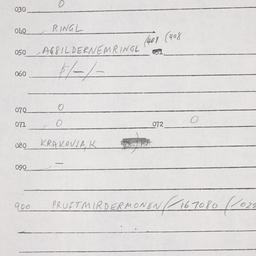 030 0
040 RINGL
050 AGBILDERNEMRINGL
060 F/-/-
070 0
071 0 072 0
080 KRAKOVIA, K
090 -
900 PRUFTMIRDERMONEN (/167080 (/022